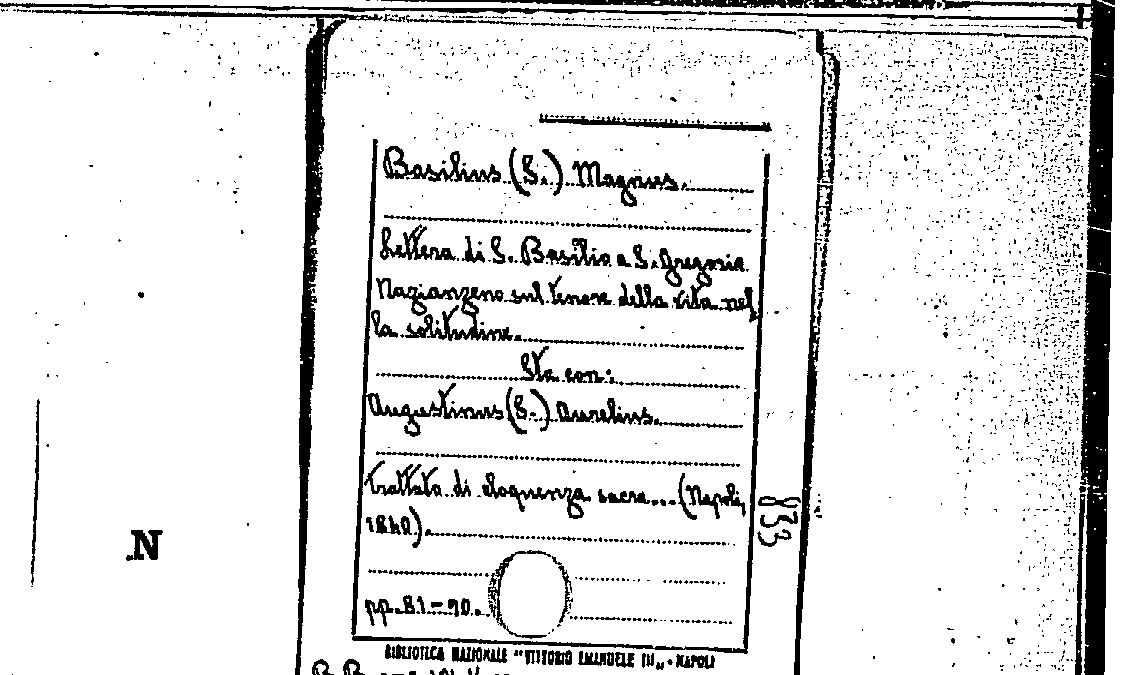 Basilius (S.) Magnus.
Lettera di S. Basilio a S. Gregorio
Nazianzeno sul tenore della vita nel
la solitudine.
Sta con:
Augustinus (S.) Aurelius.
Trattato di eloquenza sacra... (Napoli,
1840).
pp. 81-90.
BIBLIOTECA NAZIONALE "VITTORIO EMANUELE III" - NAPOLI
833
N